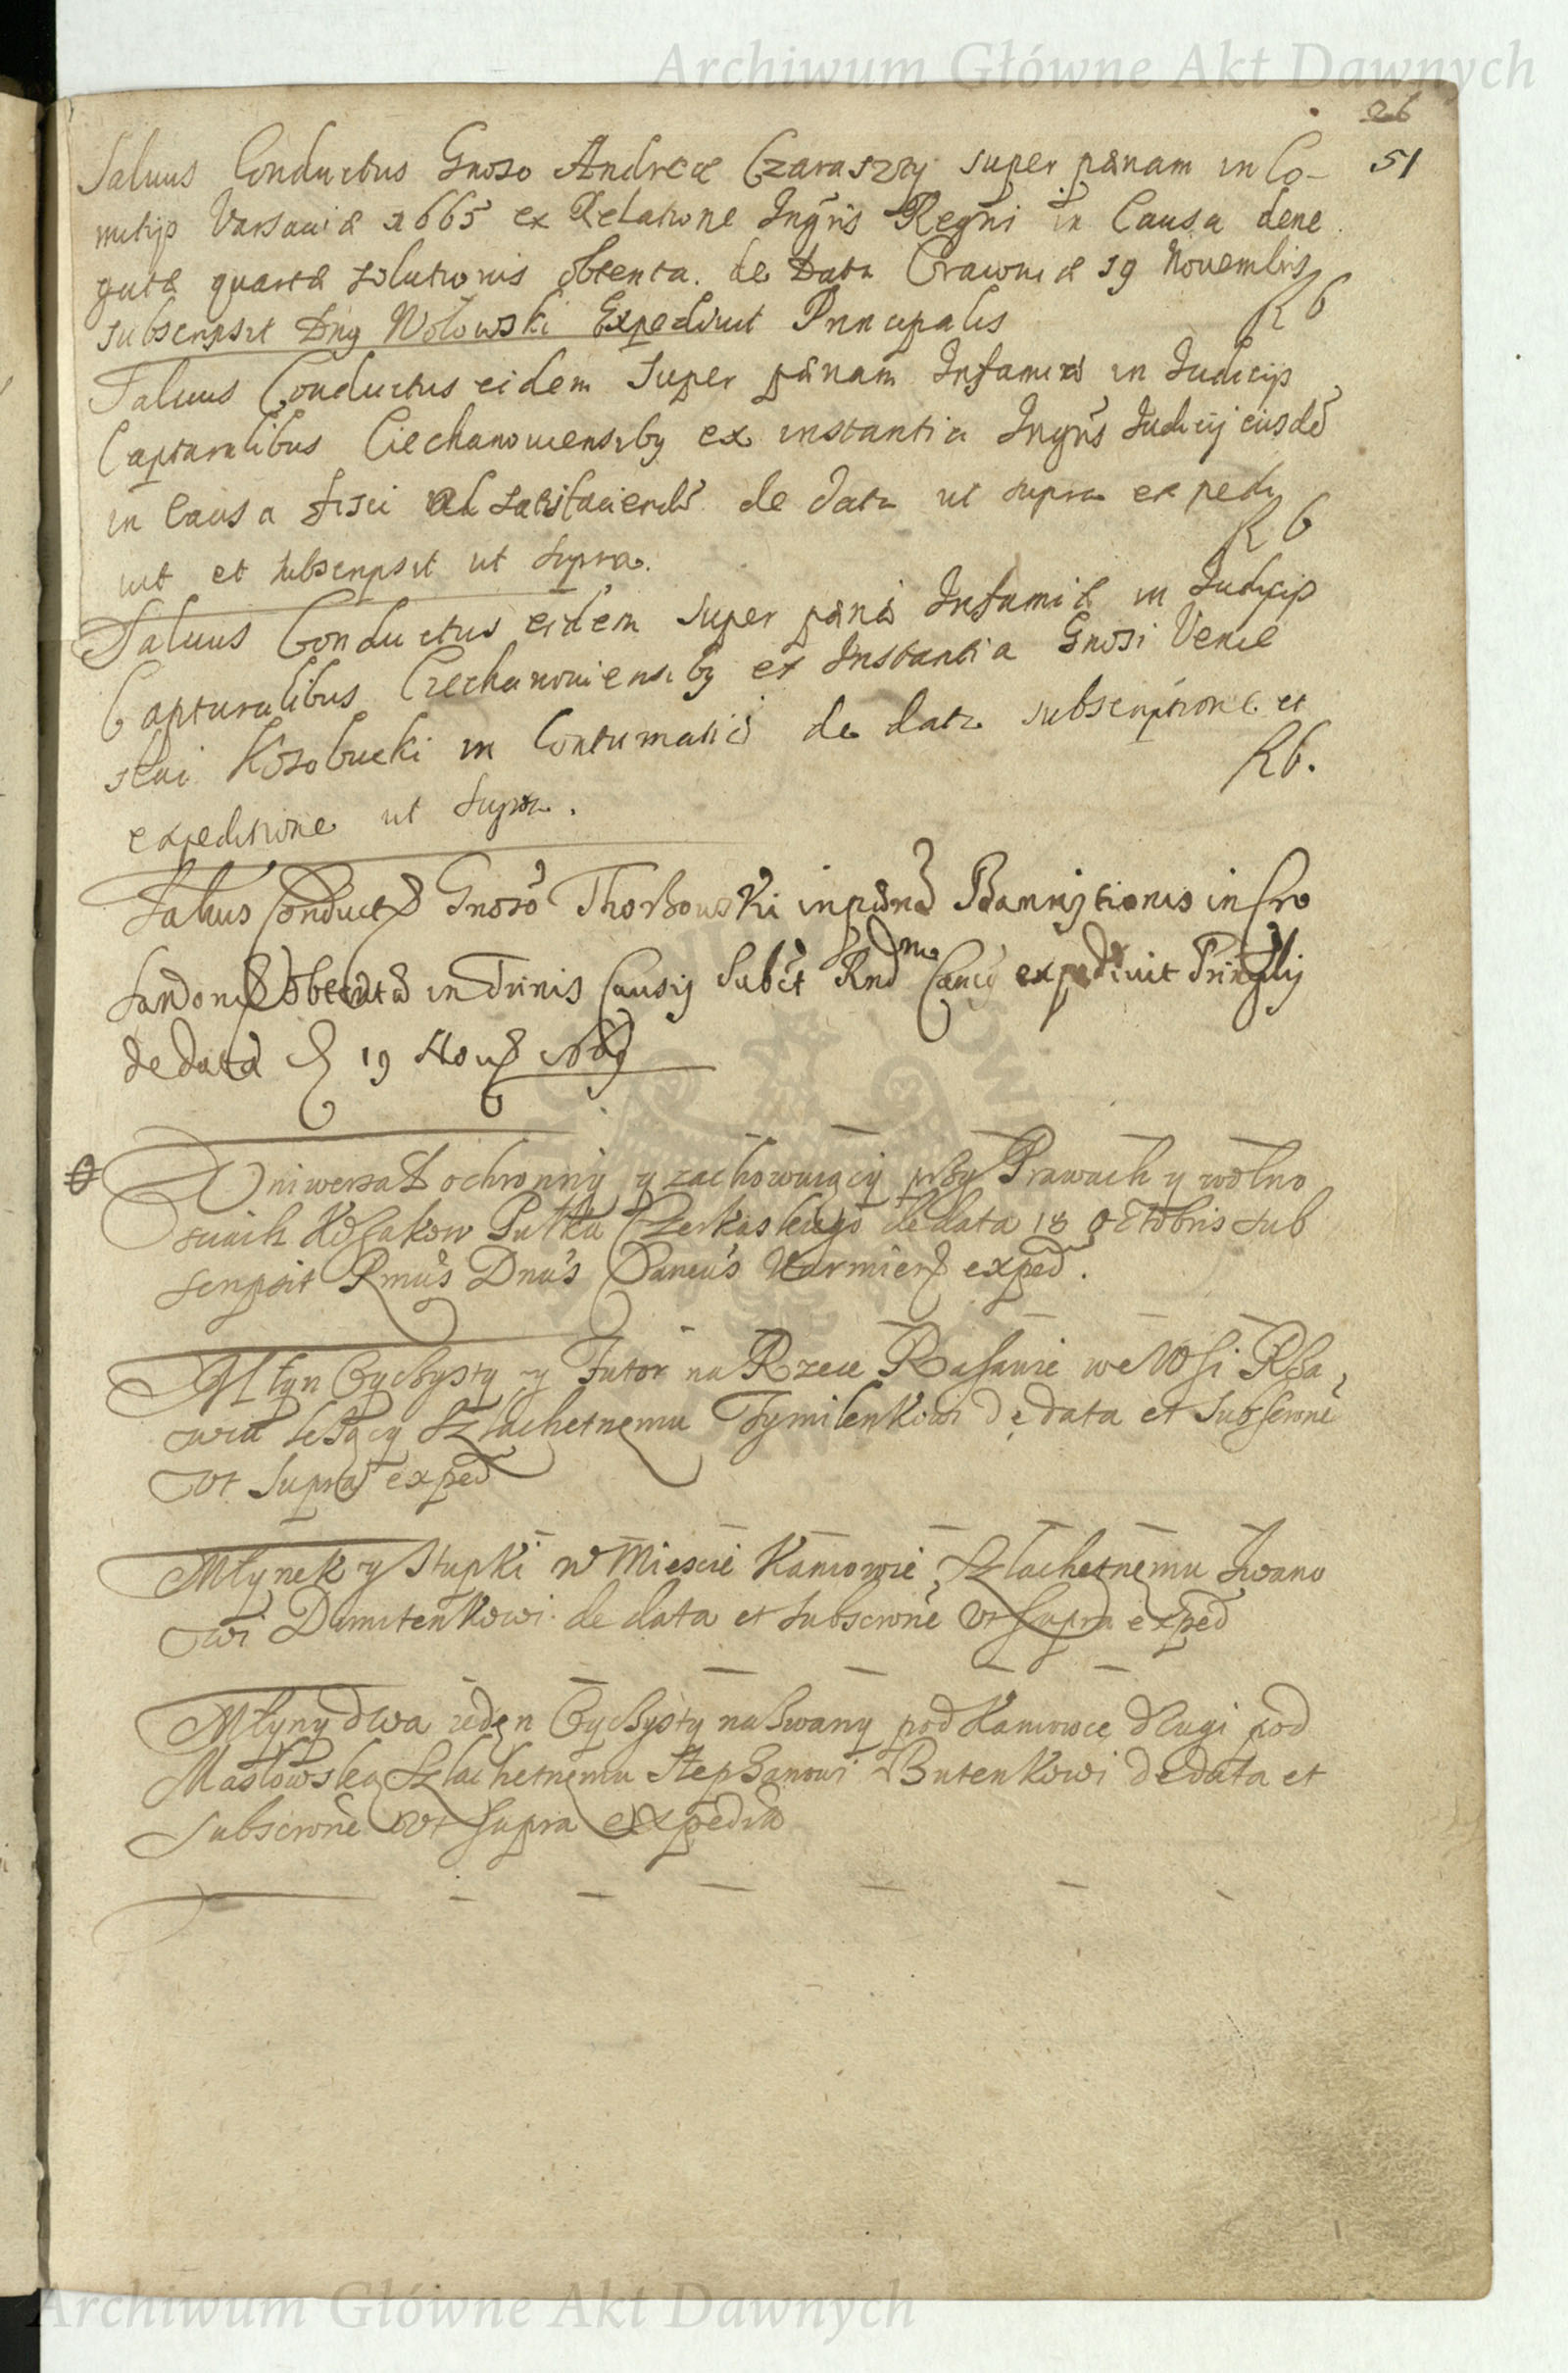 Archiwum Główne Akt Dawnych
26
51
Saluus Conductus Gnoso Andreæ Czaraszky super pænam in Co-
mitijs Varsauiæ 1665 ex Relatione Ingris Regni in Causa dene
gatæ quartæ solutionis obtenta. de Data Cracouiæ 19 Nouembris
subscripsit Dng Wolowski Expediuit Principalis
R 6
Saluus Conductus eidem super pænam Infamiæ in Iudicijs
Capturalibus Ciechanouiensiby ex instantia Ingris Iudicij eiusdē
in Causa fisci de data ut supra expedi
uit et subscripsit ut supra.
R 6
Saluus Conductus eidem super pænā Infamiæ in Iudicijs
Capturalibus Ciechanouiensiby ex Instantia Gnosi Vence
slai Kosobucki in Contumatiā de data subscriptione et
expeditione ut supra.
R6.
Saluus Conduct Gnoso Thorzowski in pænā Bannitionis in
in Trinis Causis expediuit
de data 19
Uniwersał ochronny y zachowuiący przy Prawach y wolno
sciach Kozakow Pułku Czerkaskiego de data 18 Octobris sub
scripsit Rmūs Dnūs Cancūs Varmien exped.
Młyn Byczysty y Futor na Rzece Rasawie we Wsi Rza,
wcu leżący Szlachetnemu Tymilenkowi de data et subscrone
vt supra exped
Młynek y Stupki w Miescie Kaniowie Szlachetnemu Iwano
wi Dimitenkowi de data et subscrone vt supra exped
Młyny dwa ieden Byczysty nazwany pod Kaniowce drugi pod
Masłowską Szlachetnemu Stephanowi Butenkowi de data et
subscrone vt supra expedia
Archiwum Główne Akt Dawnych